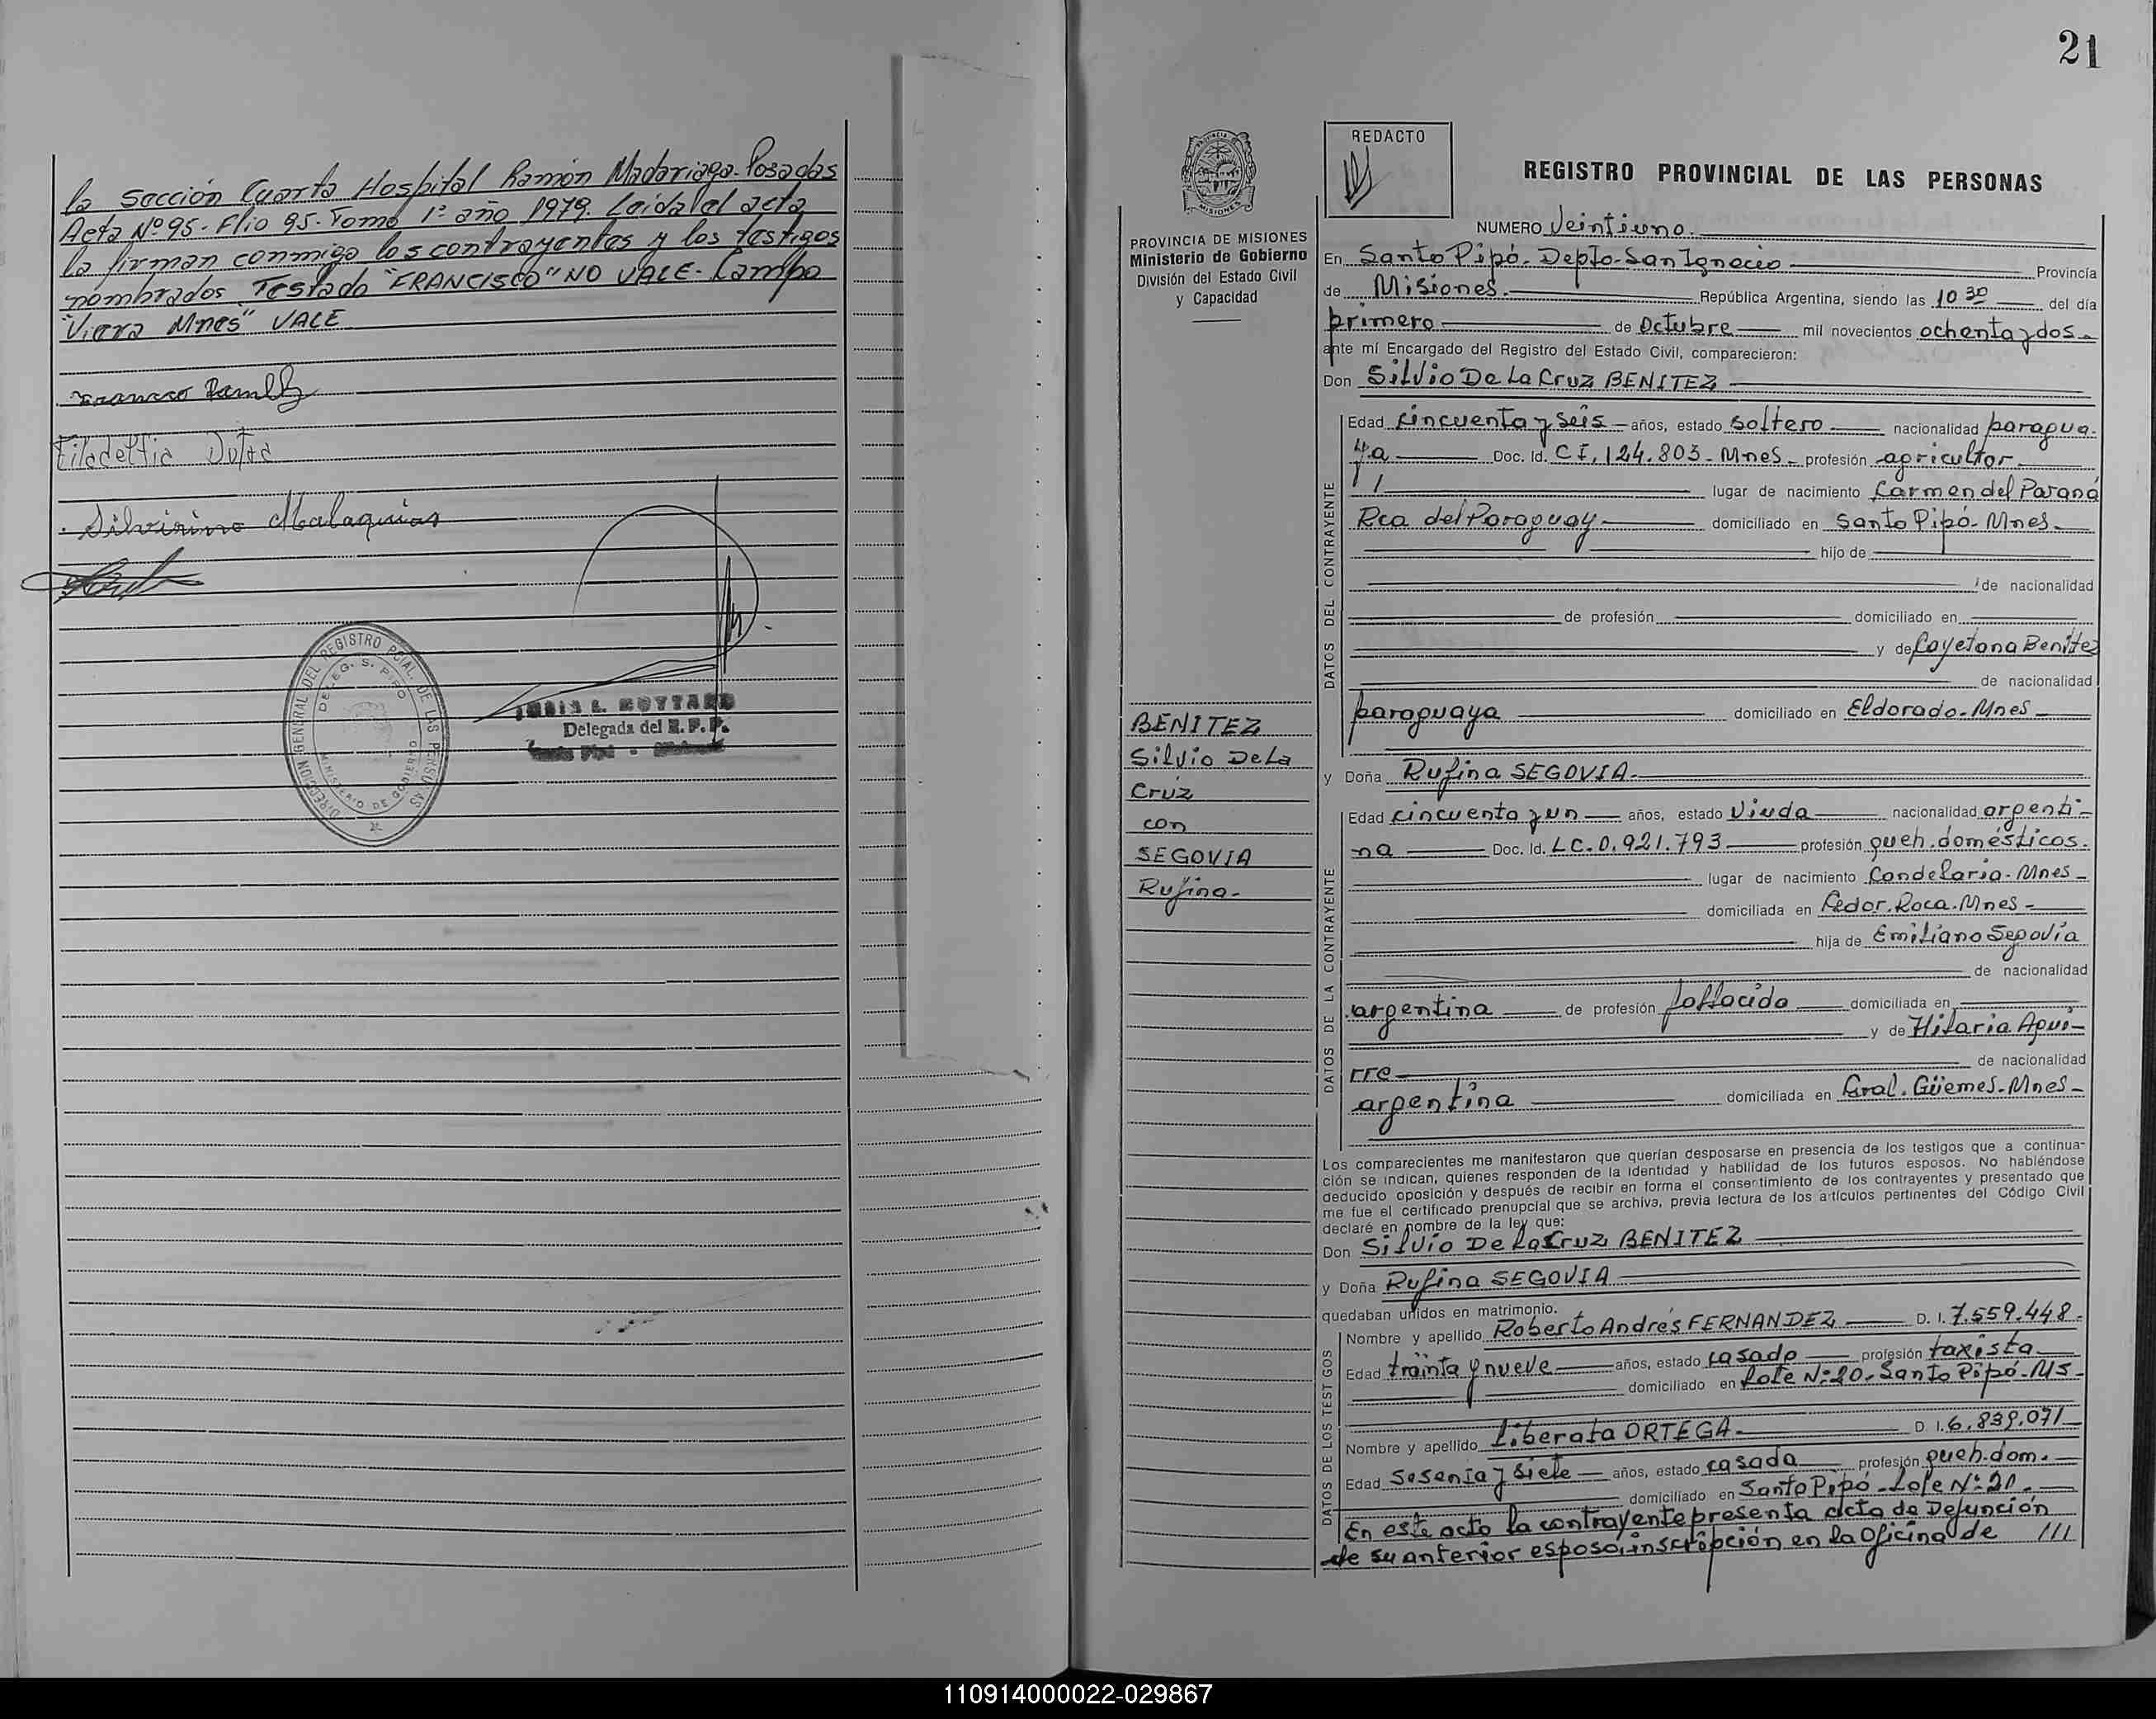 la Sección Cuarta Hospital Ramón Madariaga-Posadas
Acta Nº 95. Flio 95. Tomo 1º año 1979. Leída el acta
la firman conmigo los contrayentes y los testigos
nombrados. Testado "FRANCISCO" NO VALE. Campo
Viera Mnes" VALE
Filadelfia Dutra
Silvirino Malaquias
DIRECCION GENERAL DEL REGISTRO PCIAL. DE LAS PERSONAS
DELEG. S. PIPO
MINISTERIO DE GOBIERNO
Delegada del R. P. P.
21
REDACTO
REGISTRO PROVINCIAL DE LAS PERSONAS
PROVINCIA DE MISIONES
Ministerio de Gobierno
División del Estado Civil
y Capacidad
BENITEZ
Silvio De La
Cruz
con
SEGOVIA
Rufina-
NUMERO Veintiuno.
En Santo Pipó. Depto-San Ignacio Provincia
de Misiones. República Argentina, siendo las 10 30 del día
primero de Octubre mil novecientos ochenta y dos
ante mí Encargado del Registro del Estado Civil, comparecieron:
Don Silvio De La Cruz BENITEZ
DATOS DEL CONTRAYENTE
Edad cincuenta y seis años, estado soltero nacionalidad paragua-
ya Doc. Id. CI. 124.803-Mnes- profesión agricultor
lugar de nacimiento Carmen del Paraná
Rca del Paraguay domiciliado en Santo Pipó-Mnes-
hijo de
de nacionalidad
de profesión domiciliado en
y de Cayetana Benítez
de nacionalidad
paraguaya domiciliado en Eldorado-Mnes
y Doña Rufina SEGOVIA.
DATOS DE LA CONTRAYENTE
Edad cincuenta y un años, estado Viuda nacionalidad argenti-
na Doc. Id. LC. 0.921.793 profesión queh. domésticos.
lugar de nacimiento Candelaria-Mnes-
domiciliada en Roca. Mnes-
hija de Emiliano Segovia
de nacionalidad
argentina de profesión fallecido domiciliada en
y de Hilaria Agui-
rre
de nacionalidad
argentina domiciliada en Gral. Güemes-Mnes-
Los comparecientes me manifestaron que querían desposarse en presencia de los testigos que a continua-
ción se indican, quienes responden de la identidad y habilidad de los futuros esposos. No habiéndose
deducido oposición y después de recibir en forma el consentimiento de los contrayentes y presentado que
me fue el certificado prenupcial que se archiva, previa lectura de los artículos pertinentes del Código Civil
declaré en nombre de la ley que:
Don Silvio De La Cruz BENITEZ
y Doña Rufina SEGOVIA
quedaban unidos en matrimonio.
DATOS DE LOS TESTIGOS
Nombre y apellido Roberto Andrés FERNANDEZ D. I. 7.559.448.
Edad treinta y nueve años, estado casado profesión taxista
domiciliado en Lote Nº 20. Santo Pipó-MS-
Nombre y apellido Liberata ORTEGA D. I. 6.839.071
Edad sesenta y siete años, estado casada profesión queh. dom.
domiciliado en Santo Pipó-Lote Nº 20.
En este acto la contrayente presenta acta de Defunción
de su anterior esposo, inscripción en la Oficina de ///
110914000022-029867